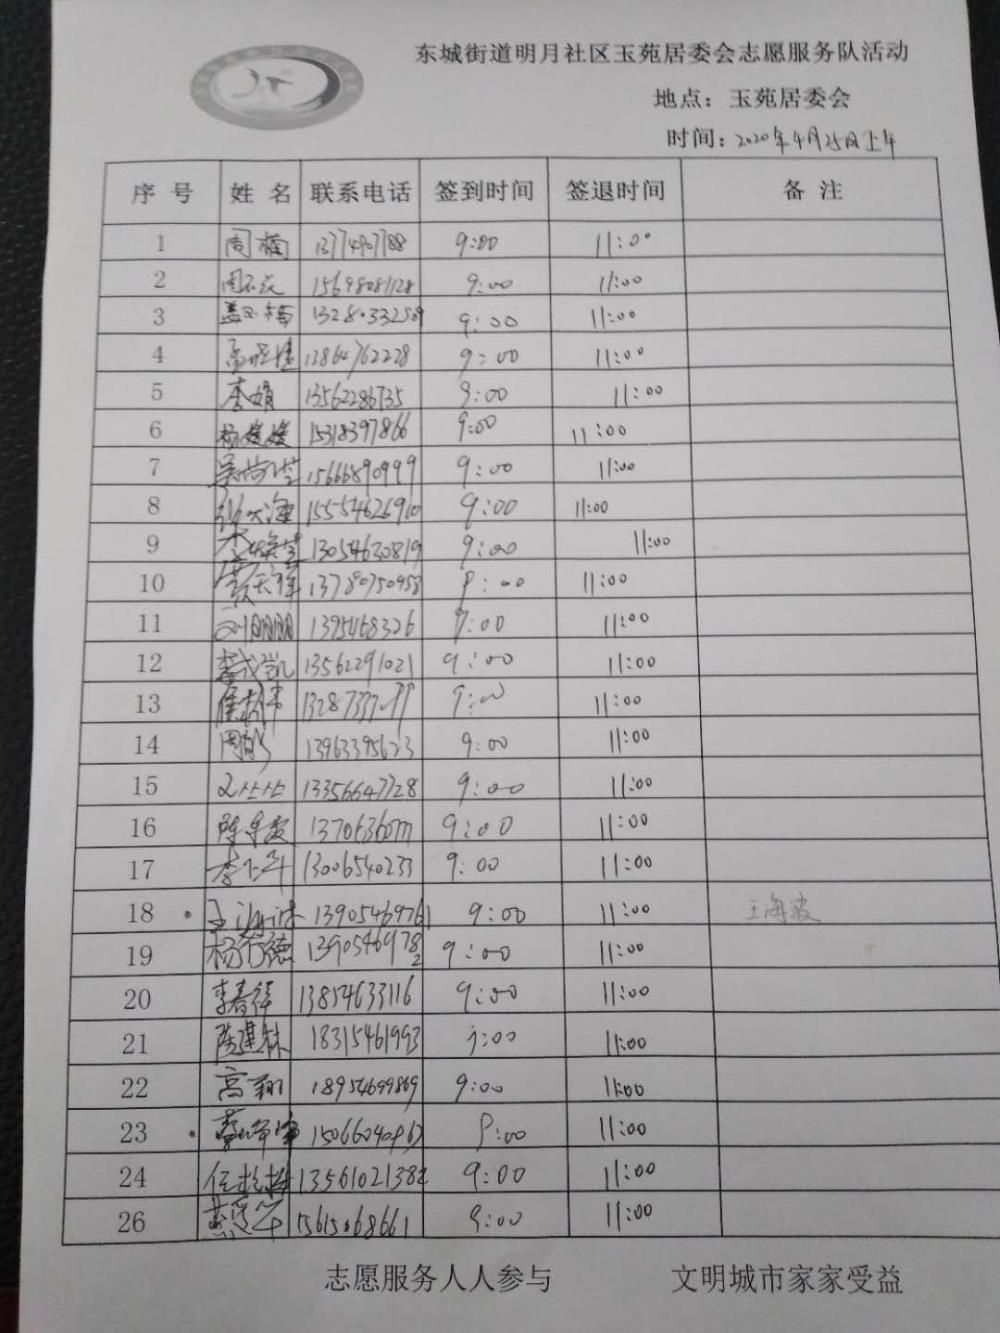 东城街道明月社区玉苑居委会志愿服务队活动
地点：玉苑居委会
时间：2020年4月25日上午
序号 姓名 联系电话 签到时间 签退时间 备注
1 周楠 9:00 11:00
2 15698081128 9:00 11:00
3 9:00 11:00
4 13864762228 9:00 11:00
5 李娟 13562286735 9:00 11:00
6 杨媛媛 15318397866 9:00 11:00
7 15666890999 9:00 11:00
8 15554626910 9:00 11:00
9 13054630819 9:00 11:00
10 贾天祥 13780750958 9:00 11:00
11 刘朋朋 1395468326 9:00 11:00
12 李成凯 13562291021 9:00 11:00
13 9:00 11:00
14 13963395623 9:00 11:00
15 13356647728 9:00 11:00
16 9:00 11:00
17 13006540233 9:00 11:00
18 13905469761 9:00 11:00 王海波
19 杨行德 13905469782 9:00 11:00
20 李春祥 13854633116 9:00 11:00
21 陈建林 18315461993 9:00 11:00
22 高翔 18954699869 9:00 11:00
23 9:00 11:00
24 13561021382 9:00 11:00
26 15615068661 9:00 11:00
志愿服务人人参与 文明城市家家受益